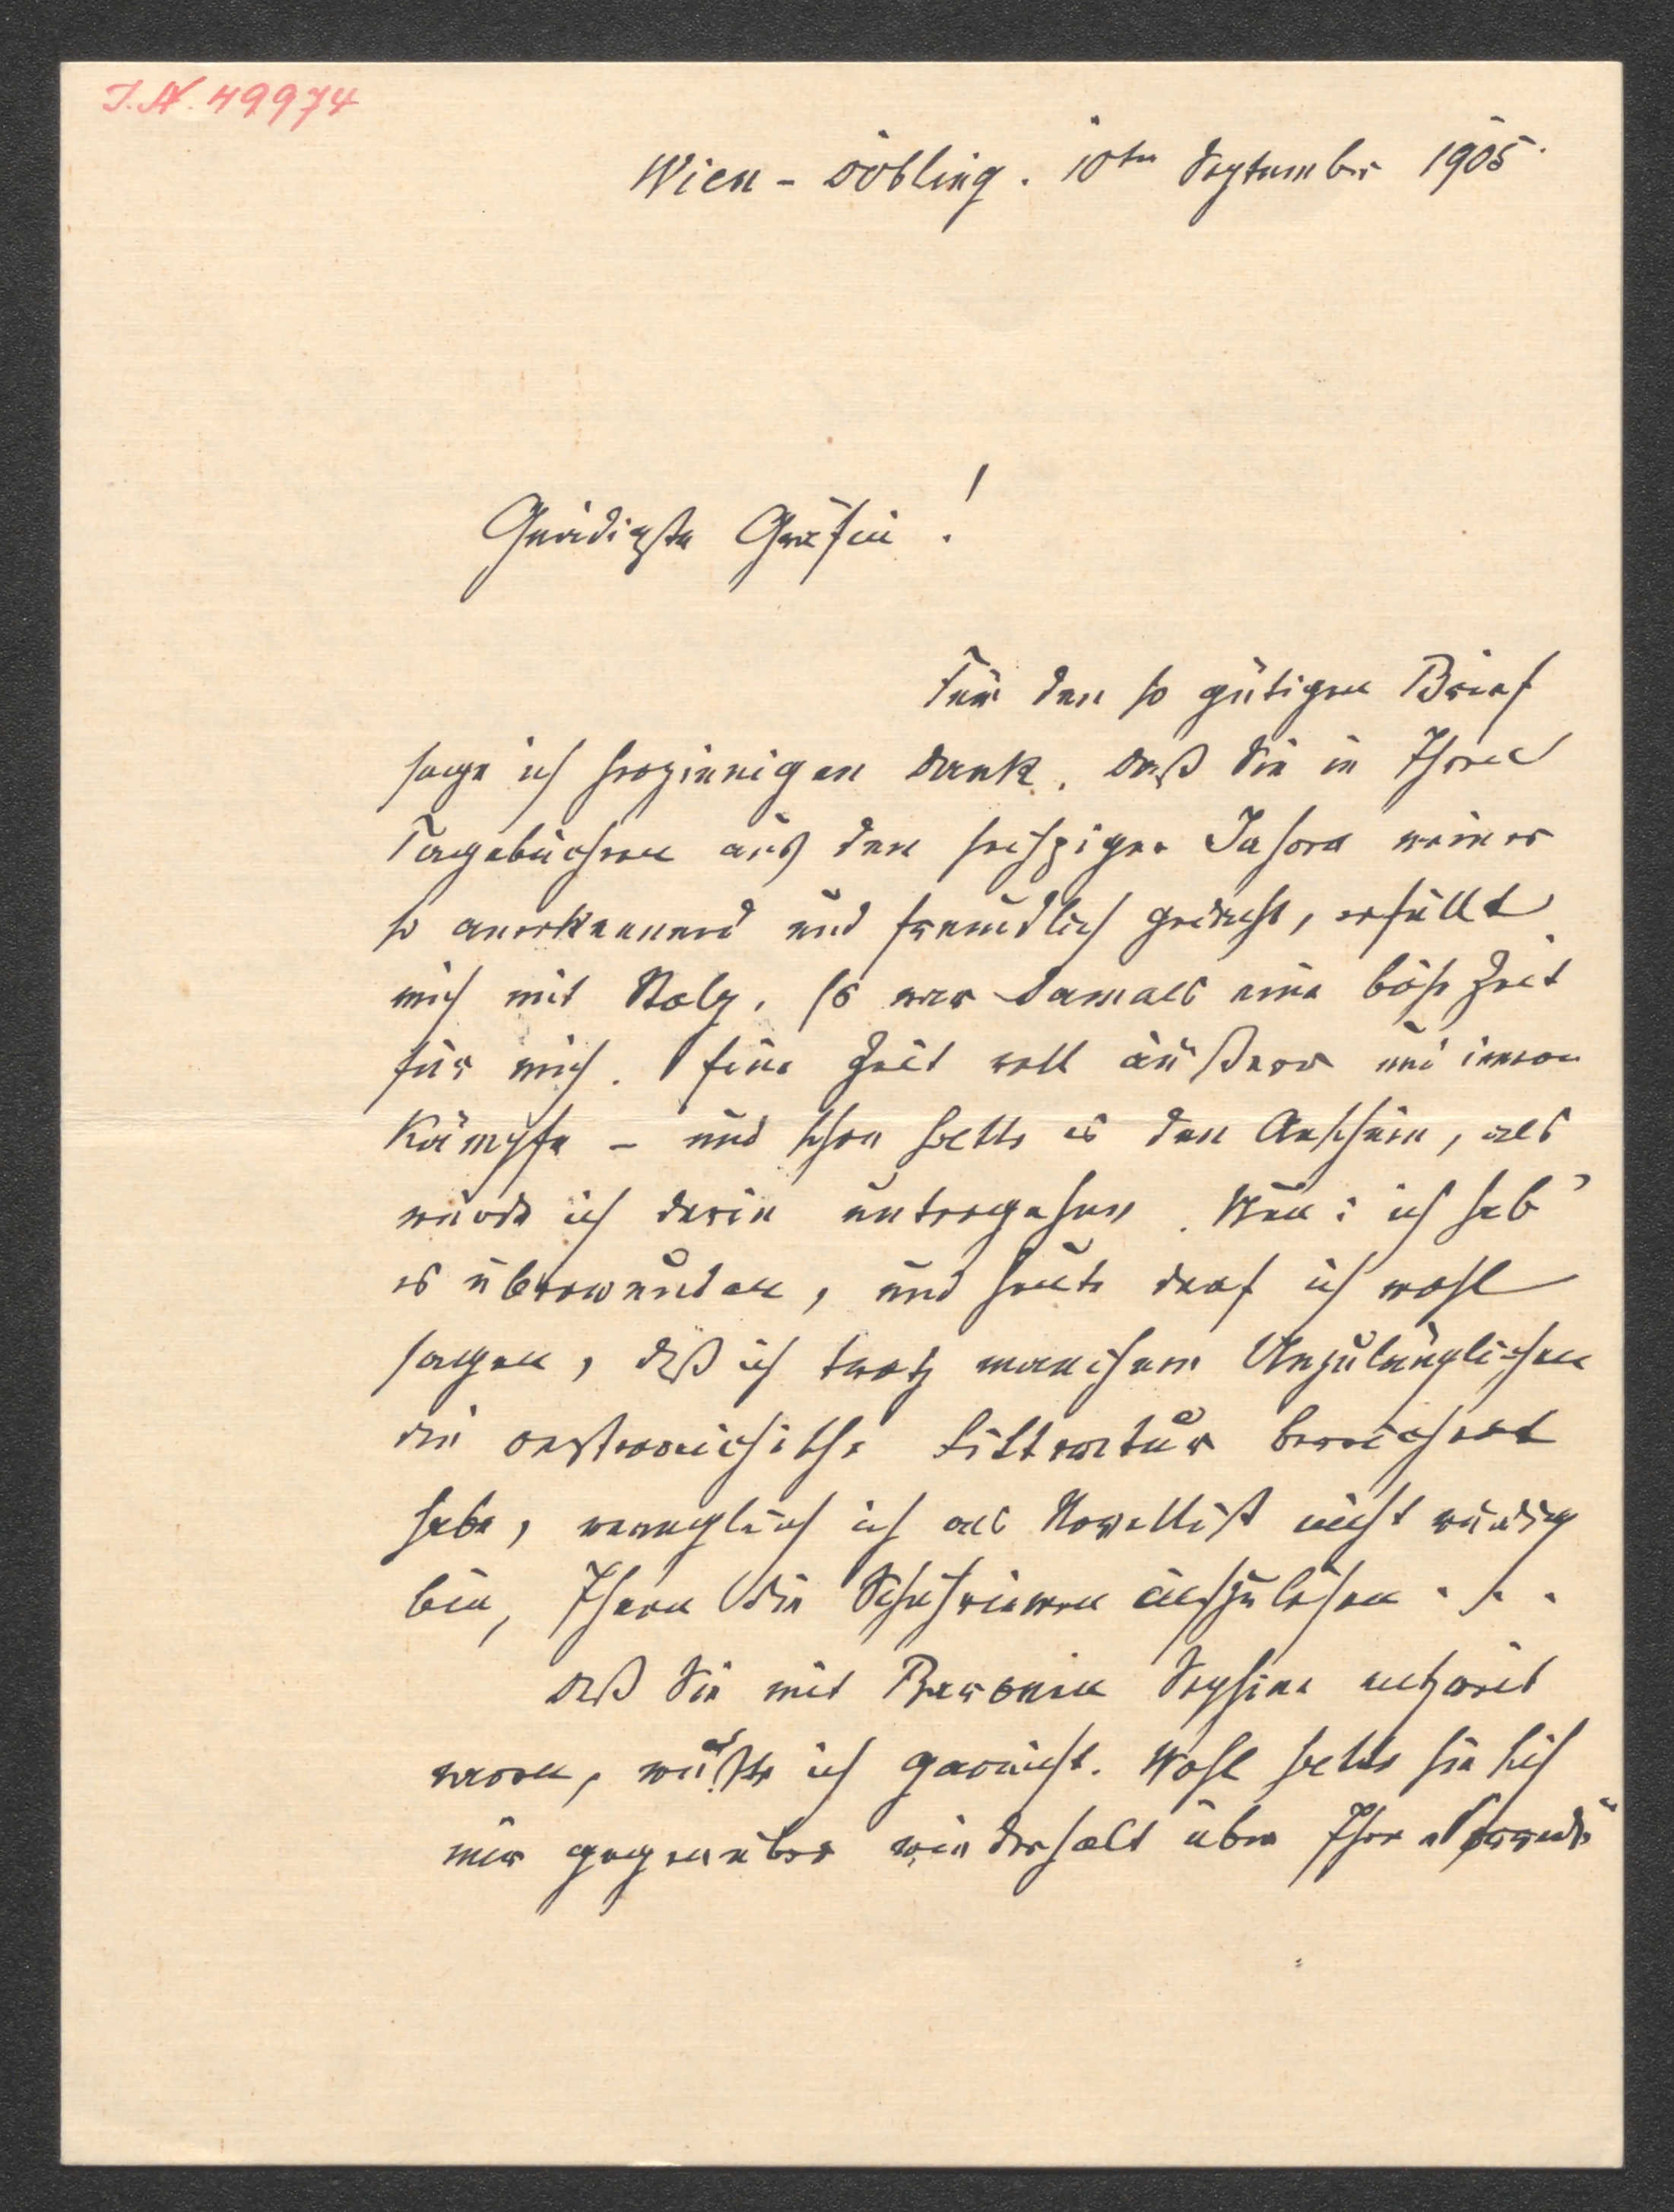 I.N. 49974
Wien - Döbling. 10ten September 1905.
Gnädigste Gräfin!
Für den so gütigen Brief
sage ich herzinnigen Dank. Daß Sie in Ihren
Tagebüchern aus den sechziger Jahren meiner
so anerkennend und freundlich gedacht, erfüllt
mich mit Stolz. Es war damals eine böse Zeit
für mich. Eine Zeit voll äußerer und innerer
Kämpfe - und schon hatte es den Anschein, als
würde ich darin untergehen. Nun: ich hab'
es überwunden, und heute darf ich wohl
sagen, daß ich trotz manchem Unzulänglichen
die oesterreichische Litteratur bereichert
habe, wenngleich ich als Novellist nicht würdig
bin, Ihnen die Schuhriemen aufzulösen . . .
Daß Sie mit Baronin Sophie entzweit
waren, wußte ich garnicht. Wohl hatte sie sich
mir gegenüber wiederholt über Ihre